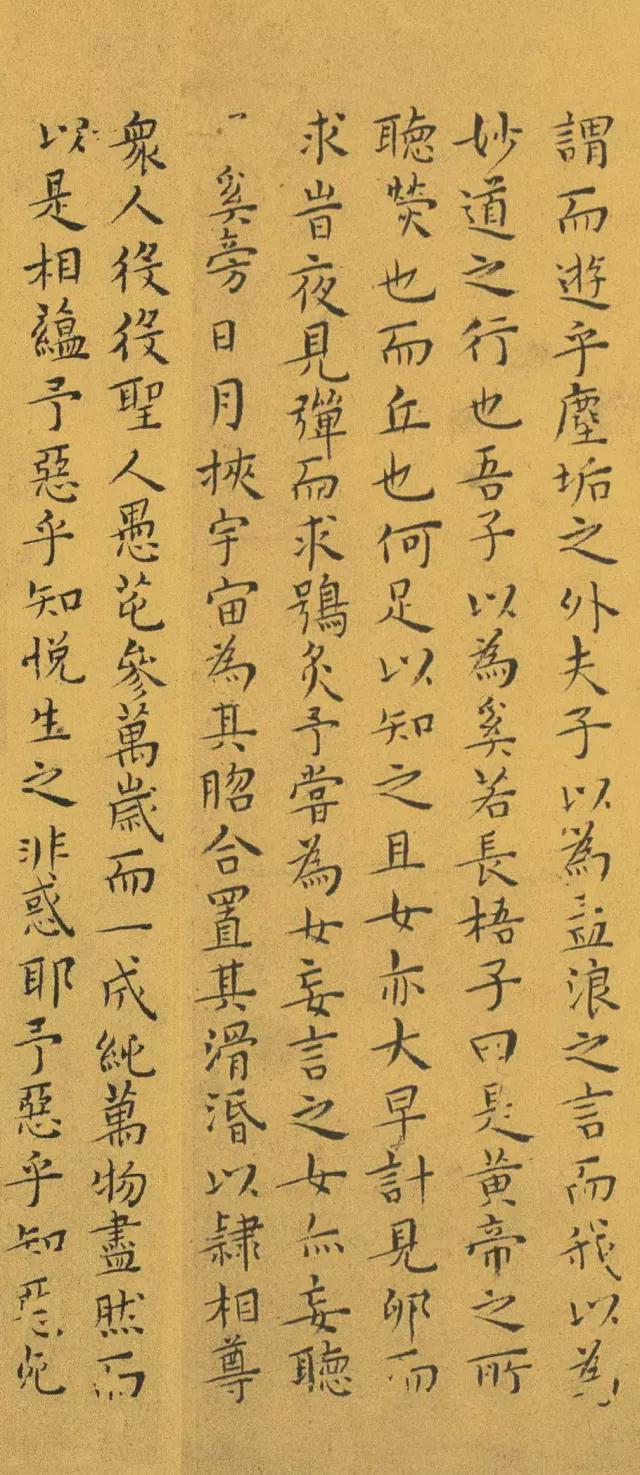 謂而遊乎塵垢之外夫子以為孟浪之言而我以為
妙道之行也吾子以為奚若長梧子曰是黃帝之所
聽熒也而丘也何足以知之且女亦大早計見卵而
求峕夜見彈而求鴞炙予嘗為女妄言之女亦妄聽
奚旁日月挾宇宙為其脗合置其滑湣以隸相尊
衆人役役聖人愚芚參萬歲而一成純萬物盡然而
以是相蘊予惡乎知悅生之非惑耶予惡乎知惡死